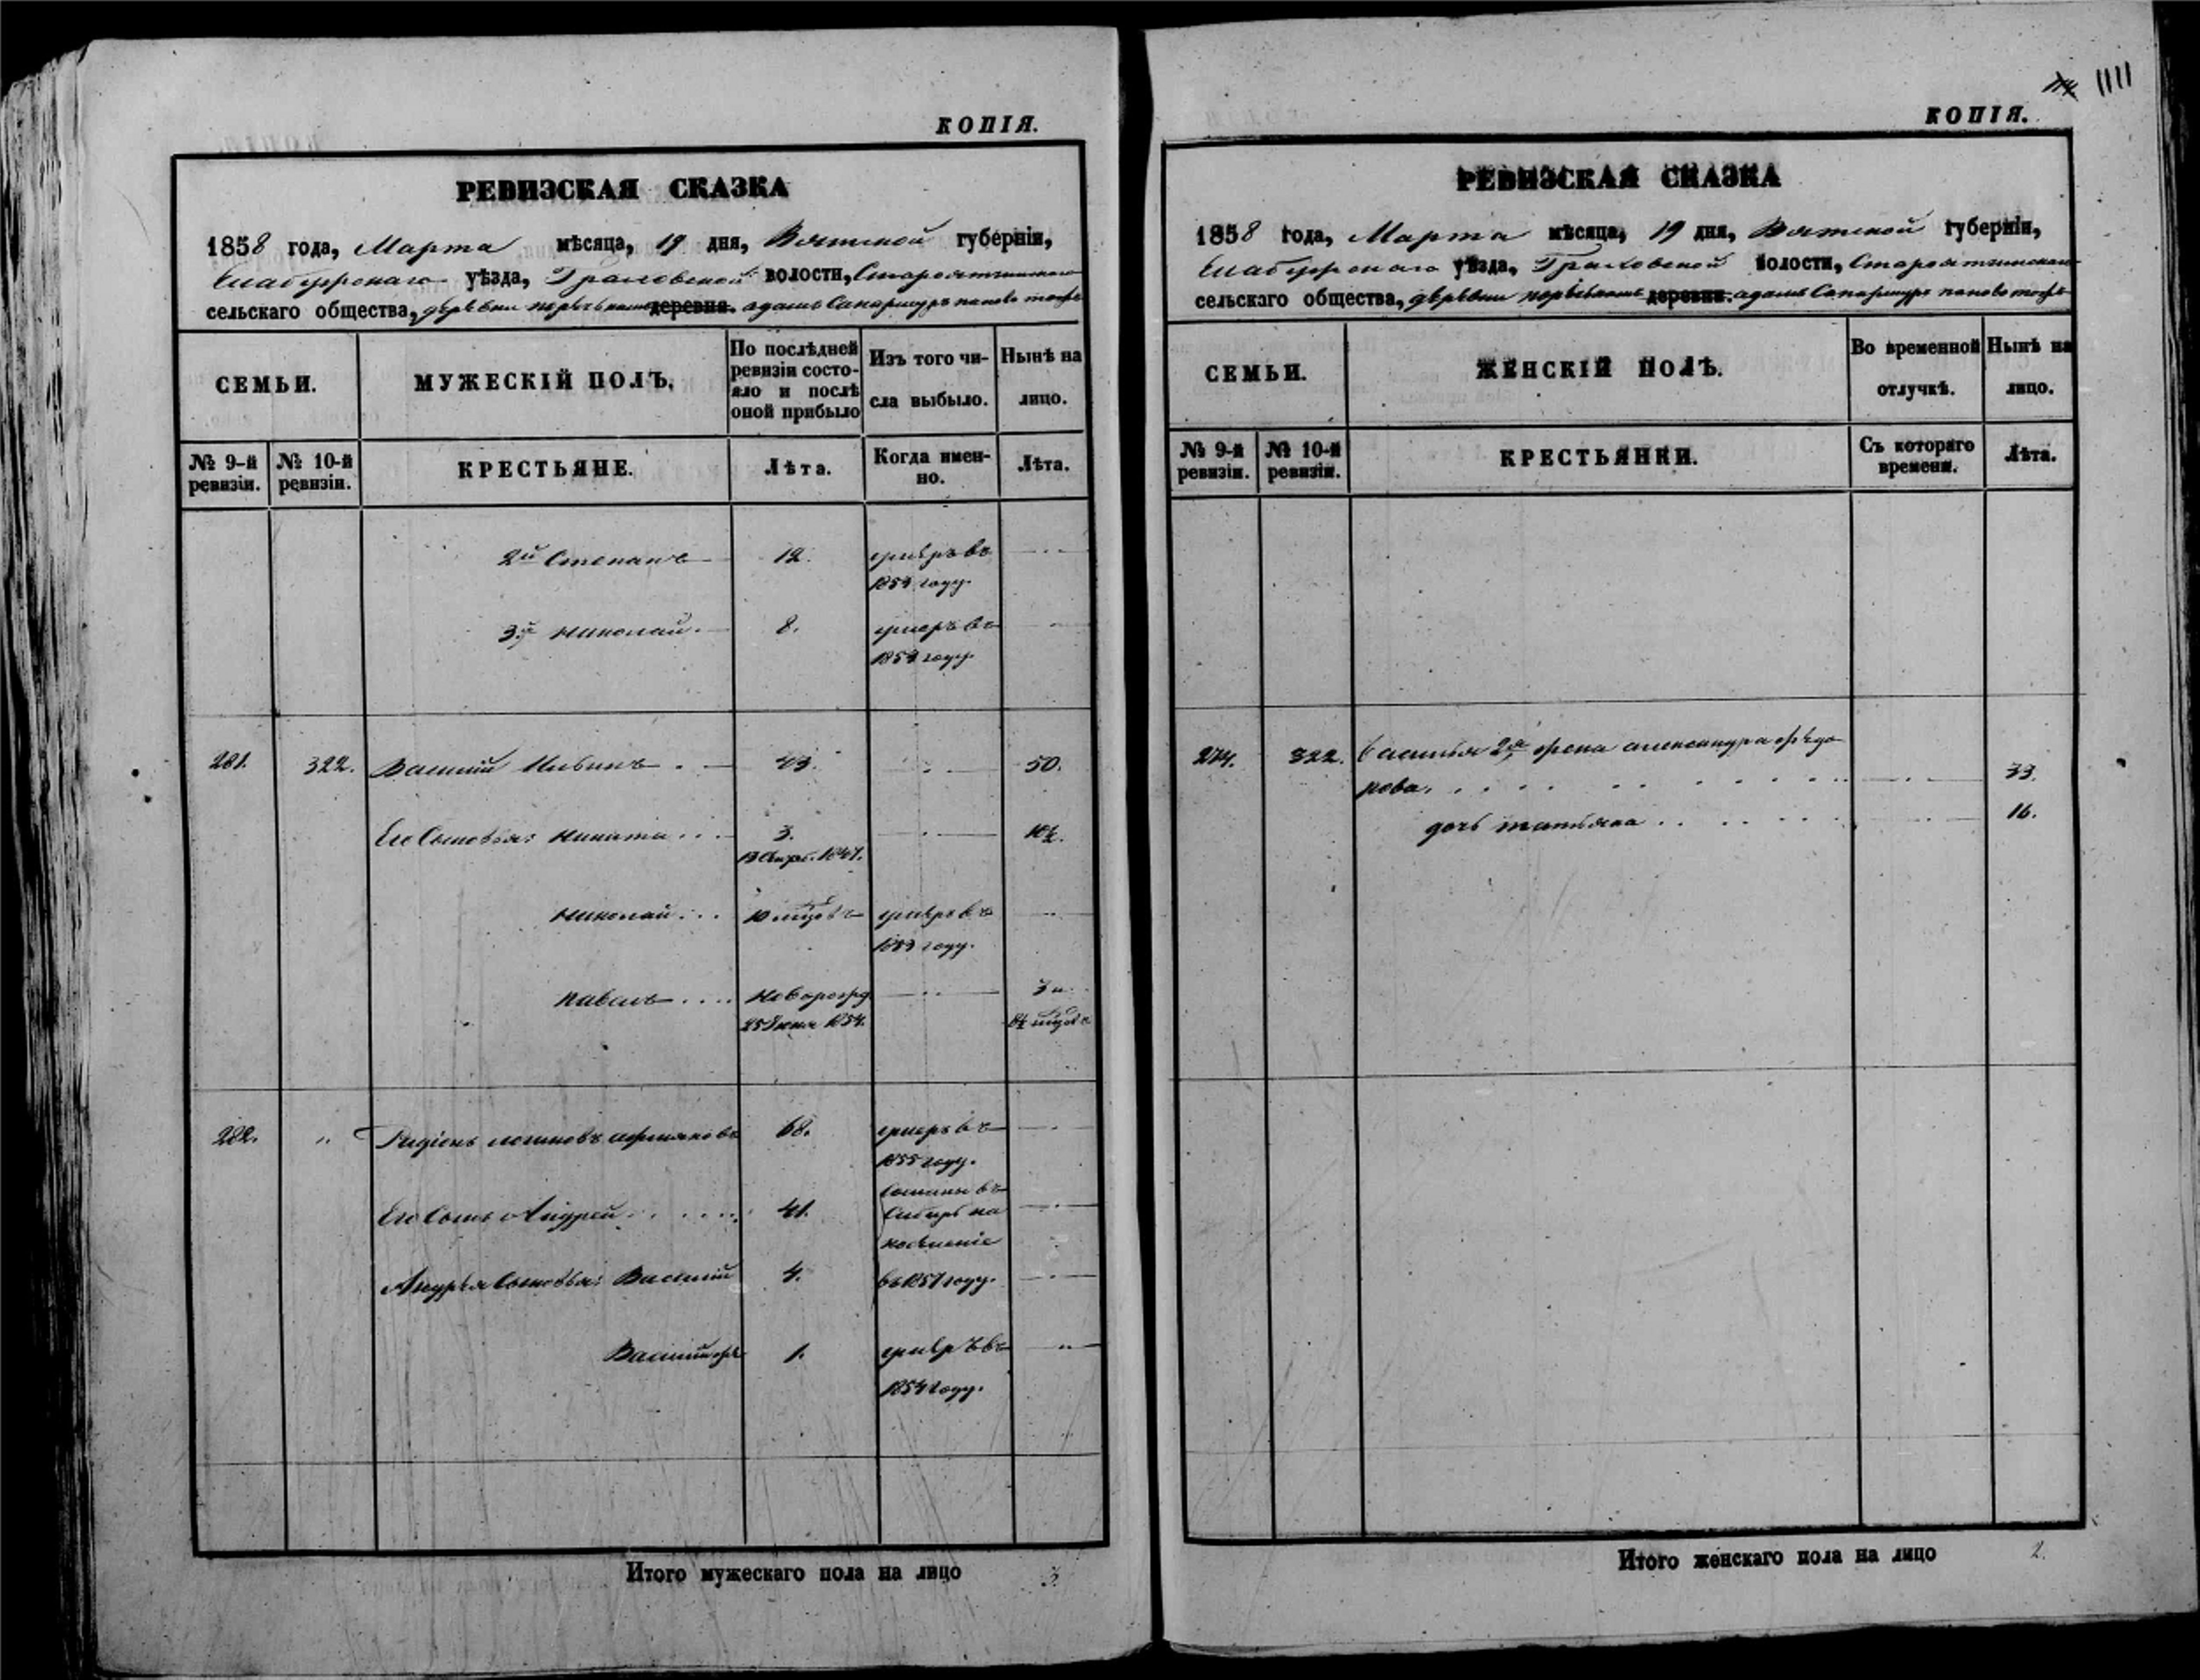 КОПІЯ.
РЕВИЗСКАЯ СКАЗКА
1858 года, Марта мѣсяца, 19 дня, Вятской губерніи,
Елабужскаго уѣзда, Граховской волости,
сельскаго общества, деревни деревня.
СЕМЬИ.
МУЖЕСКІЙ ПОЛЪ.
По послѣдней
ревизіи состо-
яло и послѣ
оной прибыло
Изъ того чи-
сла выбыло.
Нынѣ на
лицо.
№ 9-й
ревизіи.
№ 10-й
ревизіи.
КРЕСТЬЯНЕ.
Лѣта.
Когда имен-
но.
Лѣта.
2й Степанъ 12. умеръ въ
1854 году.
3й Николай. 8. умеръ въ
году.
281. 322. Василій 43. 50.
Его Сыновья: Никита 3.
1847.
Николай умеръ въ
году.
Павелъ Новорожд. 3 и
25 Іюня 1854.
282. " 68. умеръ въ
1855 году.
Его Сынъ Андрей 41. Сосланы въ
Сибирь на
поселеніе
Андрея Сыновья: Василій 4. въ 1857 году.
Василій же 1. умеръ въ
1854 году.
Итого мужескаго пола на лицо 3.
1111
КОПІЯ.
РЕВИЗСКАЯ СКАЗКА
1858 года, Марта мѣсяца, 19 дня, Вятской губерніи,
Елабужскаго уѣзда, Граховской волости,
сельскаго общества, деревни деревня.
СЕМЬИ.
ЖЕНСКІЙ ПОЛЪ.
Во временной
отлучкѣ.
Нынѣ на
лицо.
№ 9-й
ревизіи.
№ 10-й
ревизіи.
КРЕСТЬЯНКИ.
Съ котораго
времени.
Лѣта.
274. 322. Василья 2я жена Александра Ѳедо
рова. 33.
дочь Татьяна 16.
Итого женскаго пола на лицо 2.